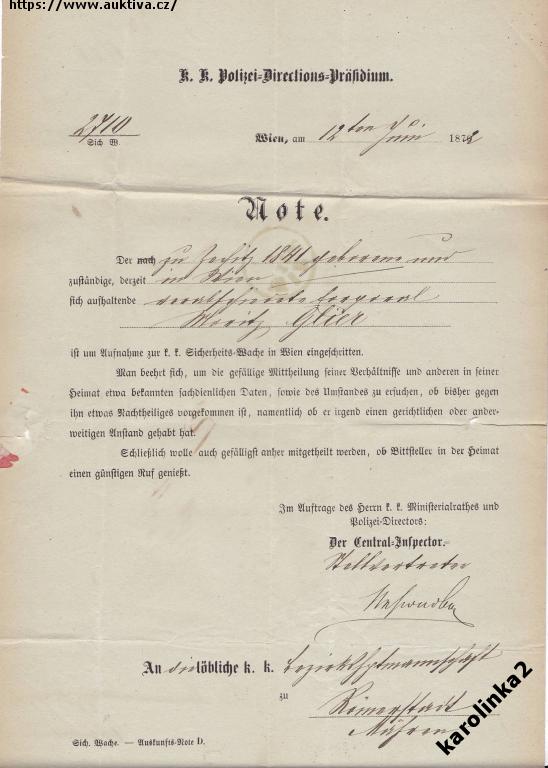 https://www.auktiva.cz/
K. K. Polizei-Directions-Präsidium.
2710
Sich W.
Wien, am 12ten Juni 1872
Note.
Der nach zu 1841 geborene und
zuständige, derzeit in Wien
sich aufhaltende verabschiedete Corporal
Moritz Glier
ist um Aufnahme zur k. k. Sicherheits-Wache in Wien eingeschritten.
Man beehrt sich, um die gefällige Mittheilung seiner Verhältnisse und anderen in seiner
Heimat etwa bekannten sachdienlichen Daten, sowie des Umstandes zu ersuchen, ob bisher gegen
ihn etwas Nachtheiliges vorgekommen ist, namentlich ob er irgend einen gerichtlichen oder ander-
weitigen Anstand gehabt hat.
Schließlich wolle auch gefälligst anher mitgetheilt werden, ob Bittsteller in der Heimat
einen günstigen Ruf genießt.
Im Auftrage des Herrn k. k. Ministerialrathes und
Polizei-Directors:
Der Central-Inspector.
Stellvertreter
An die löbliche k. k. Bezirkshptmannschaft
zu
Römerstadt
Mähren
Sich. Wache. — Auskunfts-Note D.
karolinka2